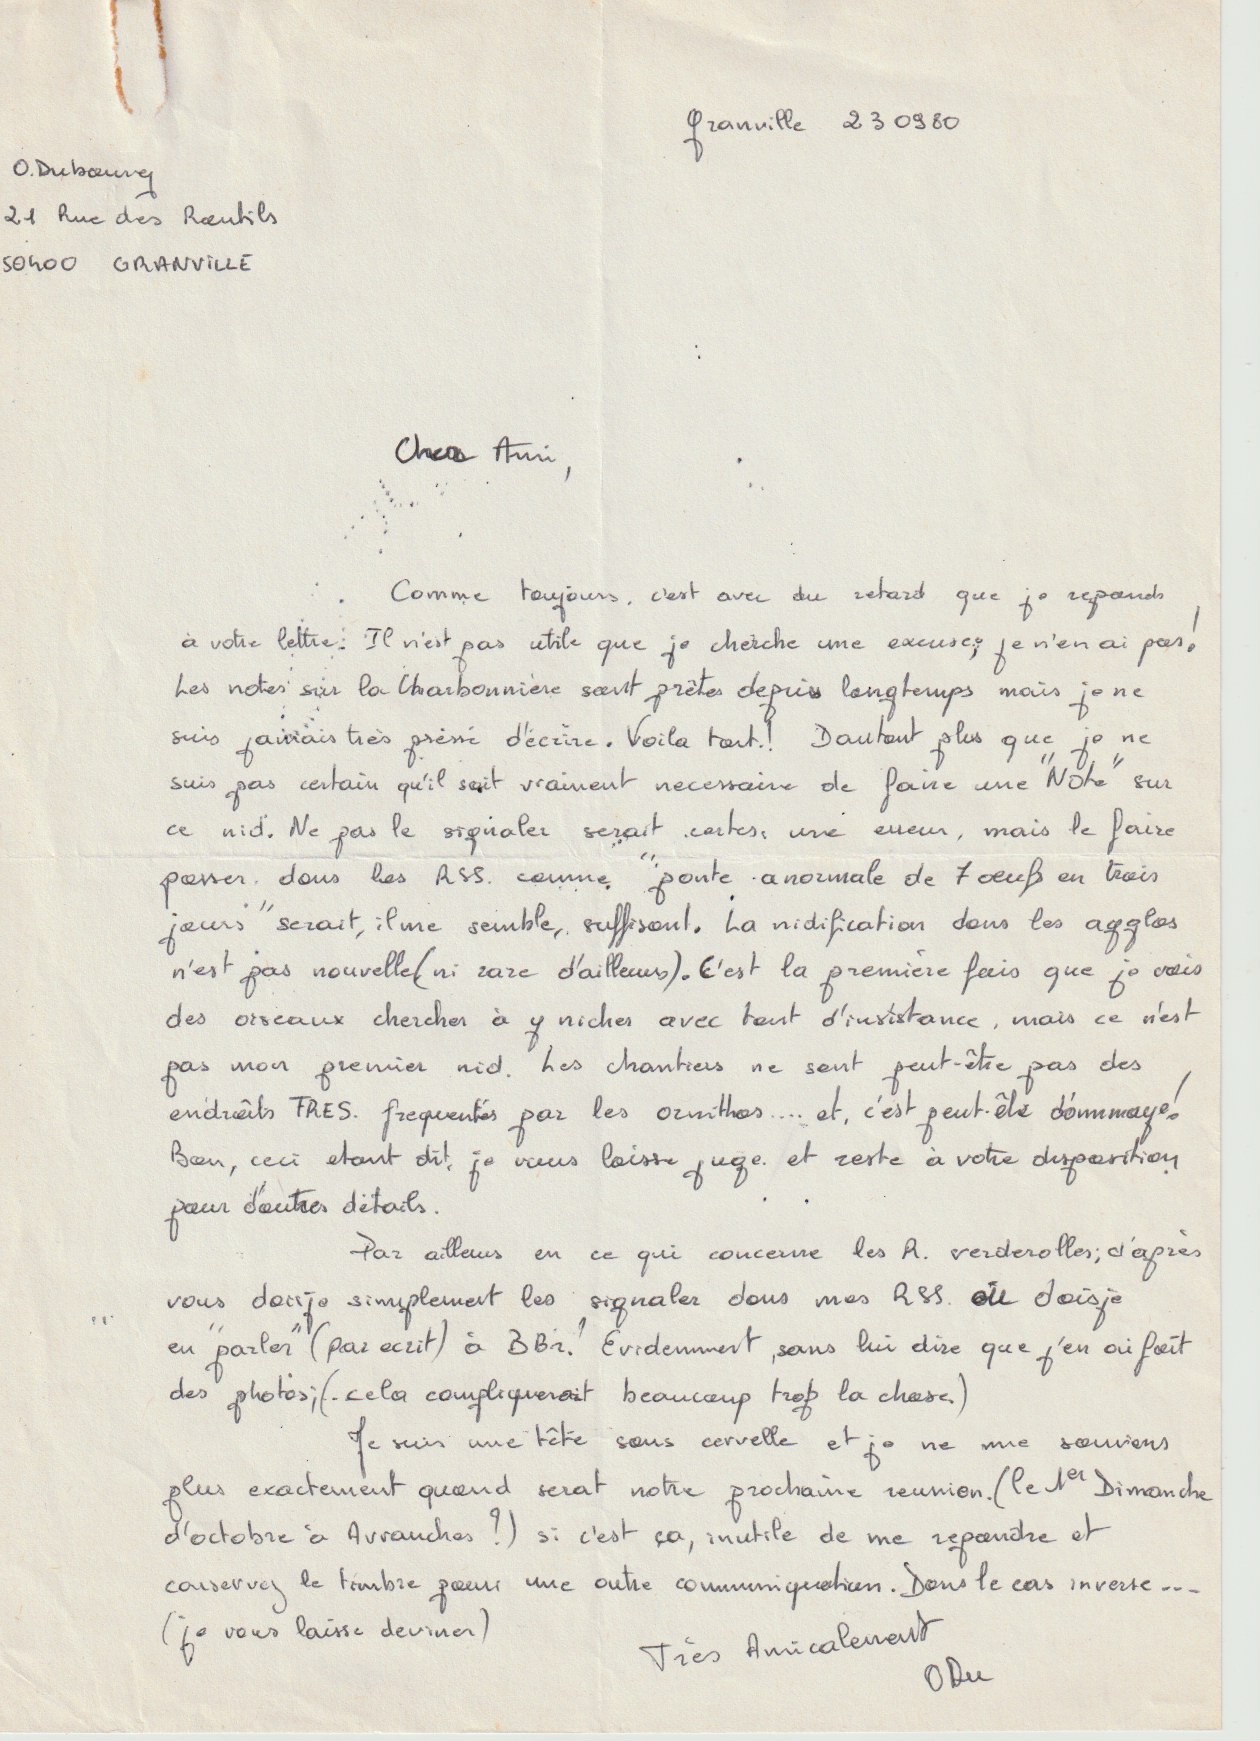 Granville 230980
O. Dubourg
21 Rue des Routils
50400 GRANVILLE
Cher Ami,
Comme toujours, c'est avec du retard que je reponds
à votre lettre. Il n'est pas utile que je cherche une excuse; je n'en ai pas!
Les notes sur la Charbonnière sont prêtes depuis longtemps mais je ne
suis jamais très pressé d'écrire. Voila tout! Dautant plus que je ne
suis pas certain qu'il soit vraiment necessaire de faire une "Note" sur
ce nid. Ne pas le signaler serait certes, une erreur, mais le faire
passer dans les RSS. comme "ponte anormale de 7 oeufs en trois
jours" serait, il me semble, suffisant. La nidification dans les agglos
n'est pas nouvelle (ni rare d'ailleurs). C'est la première fois que je vois
des oiseaux chercher à y nicher avec tant d'insistance, mais ce n'est
pas mon premier nid. Les chantiers ne sont peut-être pas des
endroits TRES. frequentés par les ornithos.... et, c'est peut-être dommage!
Bon, ceci etant dit, je vous laisse juge. et reste à votre disposition
pour d'autres détails.
Par ailleurs en ce qui concerne les R. verderolles; d'après
vous doisje simplement les signaler dans mes RSS. ou doisje
en "parler" (par ecrit) à BBr.! Evidemment, sans lui dire que j'en ai fait
des photos; (cela compliquerait beaucoup trop la chose.)
Je suis une tête sans cervelle et je ne me souviens
plus exactement quand serat notre prochaine reunion. (le 1er Dimanche
d'octobre à Avranches ?) si c'est ça, inutile de me repondre et
conservez le timbre pour une autre communiquation. Dans le cas inverse ---
(je vous laisse deviner)
Très Amicalement
ODu